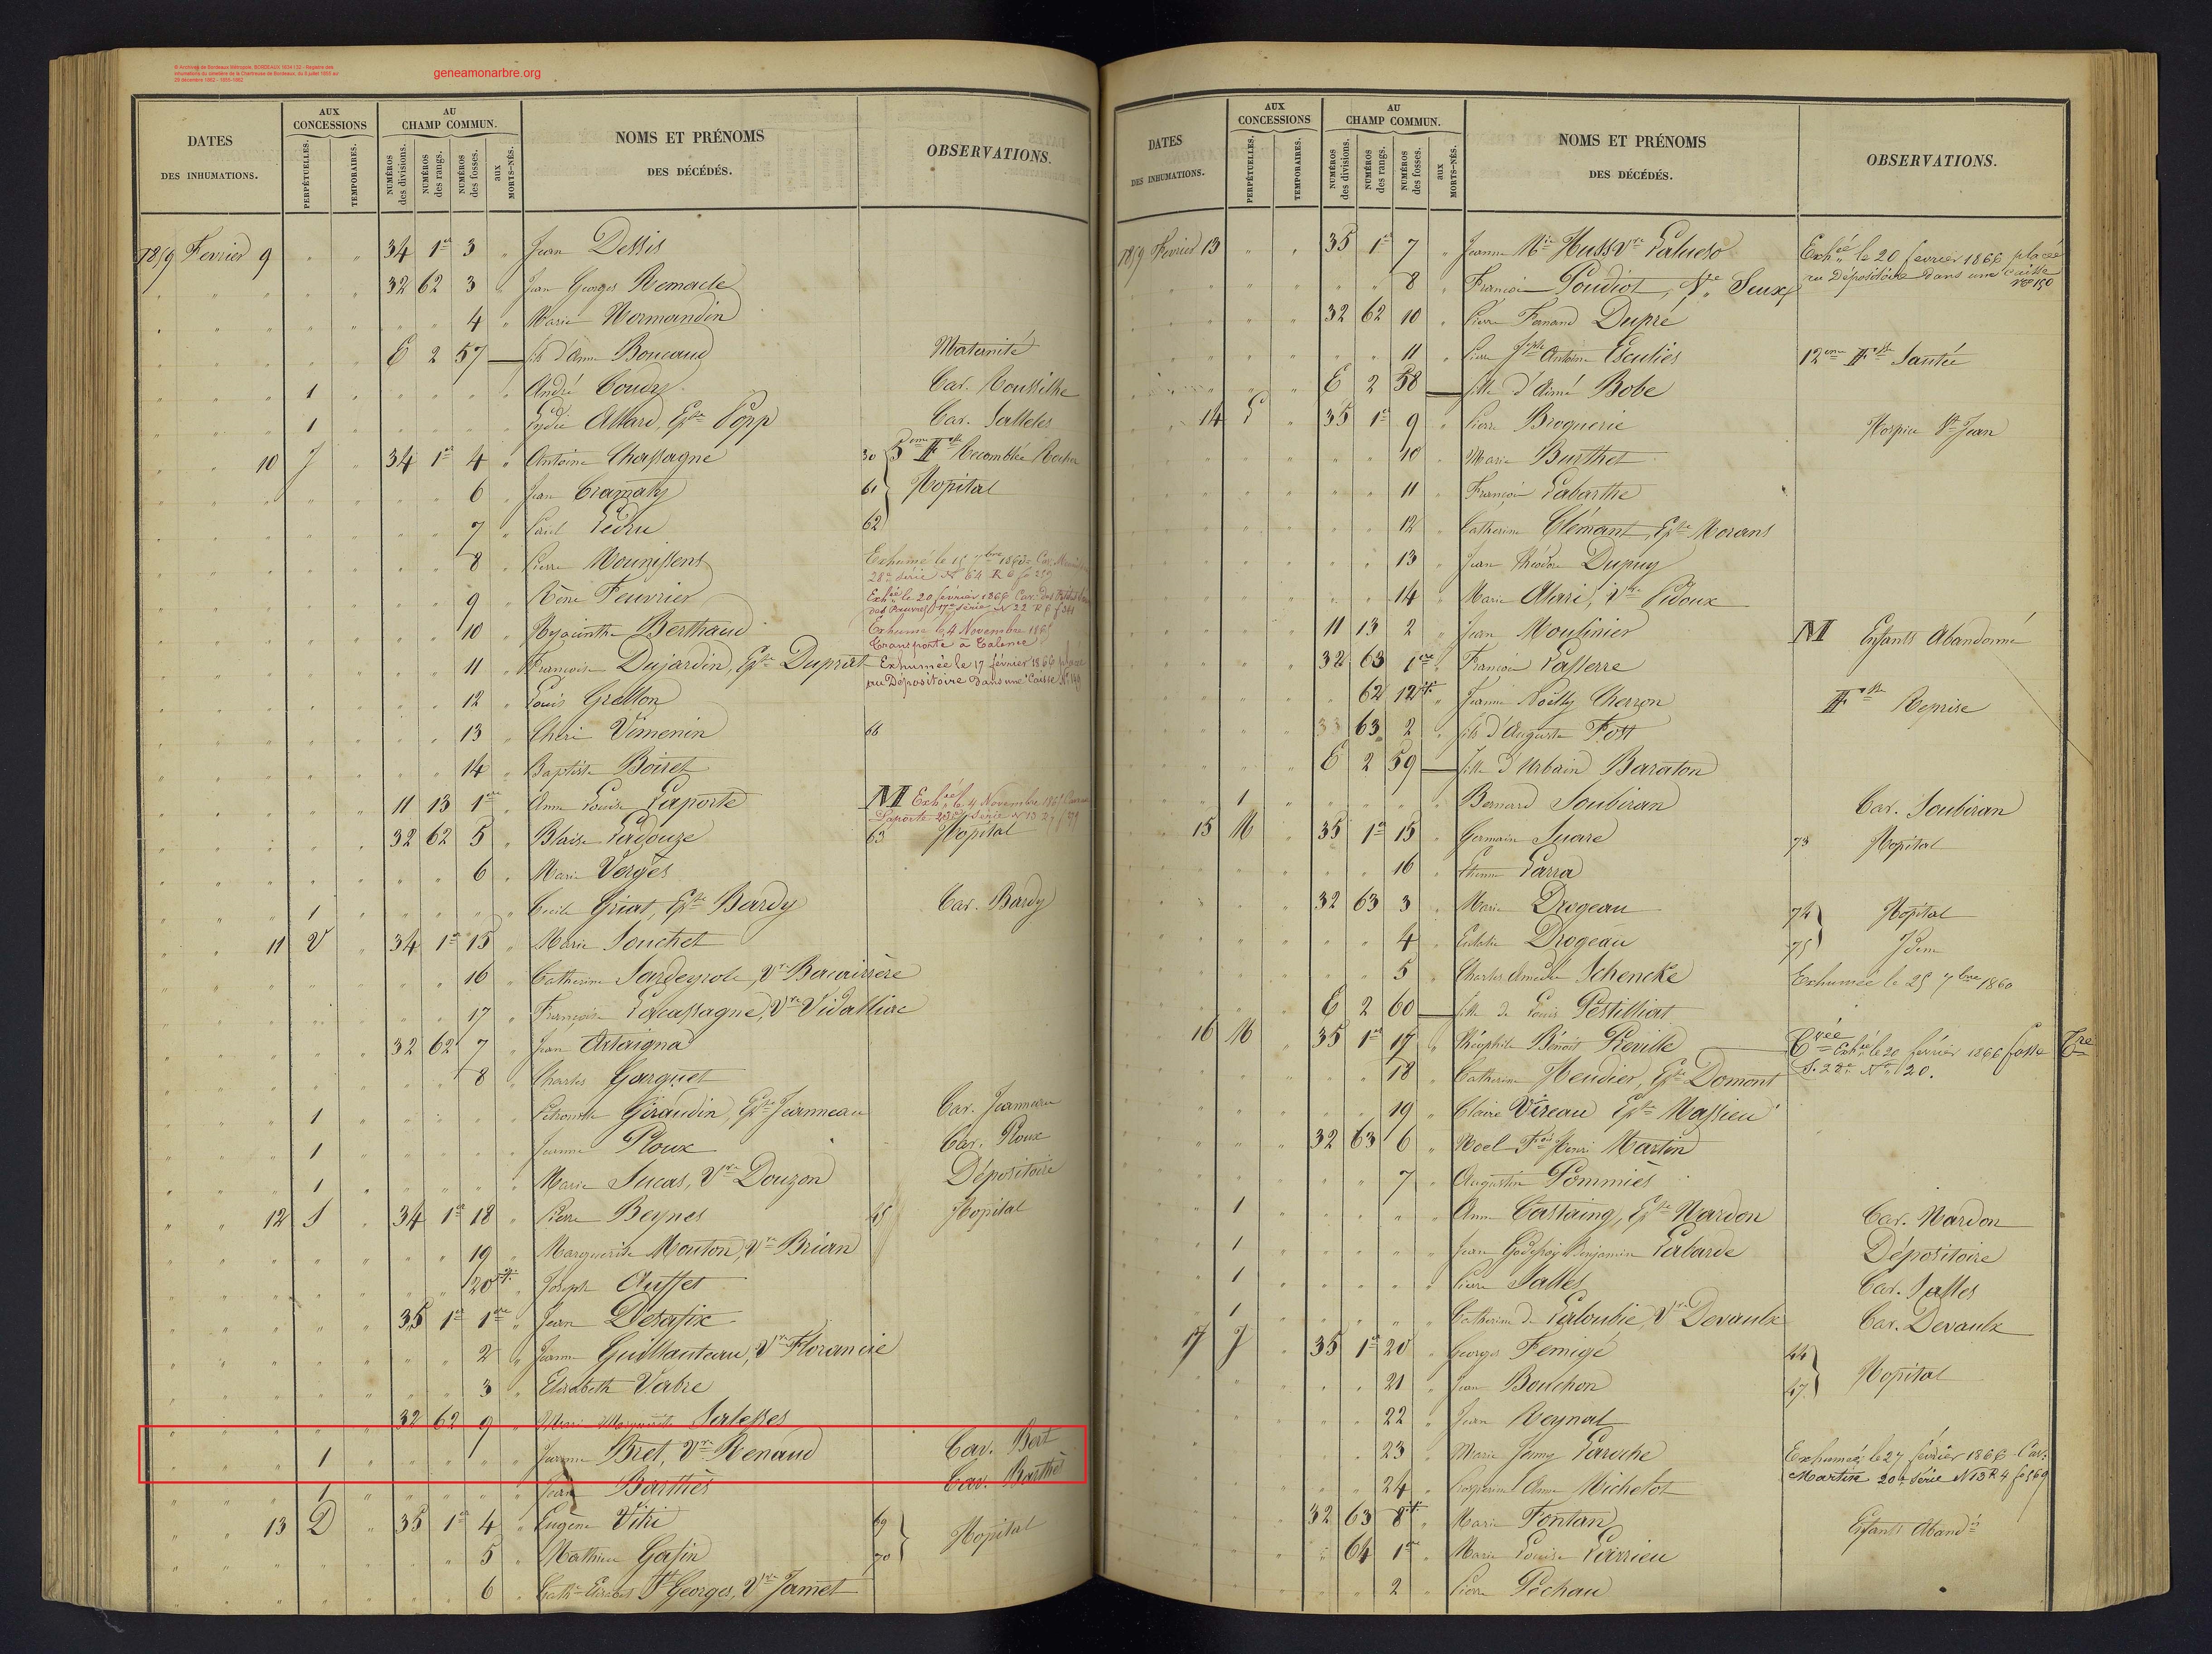 © Archives de Bordeaux Métropole, BORDEAUX
inhumations du cimetière de la Chartreuse de Bordeaux, du 8 juillet
geneamonarbre.org
DATES DES INHUMATIONS.
AUX CONCESSIONS
PERPÉTUELLES.
TEMPORAIRES.
AU CHAMP COMMUN.
NUMÉROS des divisions.
NUMÉROS des rangs.
NUMÉROS des fosses.
aux MORTS-NÉS.
NOMS ET PRÉNOMS DES DÉCÉDÉS.
OBSERVATIONS.
1859 Fevrier 9 " " 34 1er 3 " Jean Dessis
32 62 3 " Jean Georges Remacle
4 " Marie Normandin
E 2 57 fils d'Anne Boucaud Maternité
1 André Coudry Cav. Roussilhe
1 Lydie Allard, Epse Popp Cav. Salleles
10 J 34 1er 4 " Antoine Chassagne 30 5eme Fsse
6 Jean Cramaty 61 Hopital
7 Paul 62
8 Pierre Mounissens Exhumé le 15 7bre
28e Série N 64 R 6 fo 259
9 Réné Feuvrier Exhée le 20 fevrier 1866 Cav. des
des Pauvres 17e Série N 22 R 6 f 344
10 Hyacinthe Berthaud Exhumé le 4 Novembre 1865
Transporté à Talence
11 Françoise Dujardin, Epse Duprat Exhumée le 17 février 1866 placée
au Dépositoire dans une Caisse No 149
12 Louis Grellon
13 Chéri Vimenin 66
14 Baptiste Boiret
11 13 1ere Anne Louise Laporte M Exhée le 4 Novembre 1865
Laporte Série N 13
32 62 5 Blaise Ladouze 63 Hopital
6 Marie Vergès
1 Cecile Griat, Epse Bardy Cav. Bardy
11 V 34 1er 15 Marie Souchet
16 Catherine Sardeyrole, Vve Bacarrère
17 Françoise Lacassagne, Vve Vidalliac
32 62 7 Jean Artaigna
8 Charles Garquet
1 Pétronille Giraudin, Epse Jeanneau Cav. Jeanneau
1 Jeanne Roux Cav. Roux
1 Marie Lucas, Vve Douzon Dépositoire
12 S 34 1er 18 Pierre Beynes 65 Hopital
19 Marguerite Mouton, Vve Brian
20 Joseph Auffet
35 1er 1ere Jean Desafix
2 Jeanne Guillauteau, Vve Florancie
3 Elisabeth Vabre
32 62 9 Marie Marguerite
1 Jeanne Bret, Vve Renaud Cav. Bert
1 Jean Barthès Cav. Barthès
13 D 35 1er 4 Eugène Vitri 69 Hopital
5 Mathieu Gassin 70
6 St Georges, Vve Jamet
DATES DES INHUMATIONS.
AUX CONCESSIONS
PERPÉTUELLES.
TEMPORAIRES.
AU CHAMP COMMUN.
NUMÉROS des divisions.
NUMÉROS des rangs.
NUMÉROS des fosses.
aux MORTS-NÉS.
NOMS ET PRÉNOMS DES DÉCÉDÉS.
OBSERVATIONS.
1859 Fevrier 13 " " 35 1er 7 " Jeanne Mie Huss Vve Exhée le 20 fevrier 1866 placée
au Dépositoire dans une caisse
no 150
8 Poudiot, Vve Seux
32 62 10 Pierre Fernand Dupré
11 Pierre Jsph Antoine Esculiés 12eme Fsse Sautée
E 2 58 fille d'Aimé Bobe
14 35 1er 9 Pierre Broquerie Hospice St Jean
10 Marie Burthet
11 François Labarthe
12 Catherine Clémant, Epse Morans
13 Jean Théodore Dupuy
14 Marie Alari, Vve Pidoux
11 13 2 Jean Moulinier M Enfants Abandonné
32 63 1ere François Lasserre
62 12 Jeanne Noëlly Cherzon Fsse Reprise
33 63 2 fils d'Auguste Fost
E 2 59 fille d'Urbain Baraton
1 Bernard Soubiran Cav. Soubiran
15 M 35 1er 15 Germain Suare 73 Hopital
16 Etienne Larra
32 63 3 Marie Drogeau 74 Hopital
4 Eulalie Drogeau 75 Idem
5 Charles Amédée Schencke Exhumée le 25 7bre 1860
E 2 60 fille de Louis Pestilliat
16 M 35 1er 17 Théophile Benoit Pieville Exhée le 20 février 1866 fosse Tre
S. 28e No 20.
18 Catherine Heudier, Epse Domont
19 Claire Vireau Epse Massieu
32 63 6 Noel Fois Henri Martin
7 Augustin Pommiès
1 Anne Castaing, Epse Nardon Cav. Nardon
1 Jean Godefroy Benjamin Labarde Dépositoire
1 Pierre Salles Cav. Salles
1 Catherine de Laloubie, Vve Devaulx Cav. Devaulx
17 J 35 1er 20 Georges Femigé Hopital
21 Jean Bouchon 47
22 Jean Reynal
23 Marie Jenny Laroche Exhumée le 27 février 1866 Cav.
Martin 20e Série N 13 R 4 fo 569
24 Anne Michelot
32 63 8 Marie Fontan Enfants Aband
64 1ere Marie Louise Poirrieu
2 Pierre Péchau